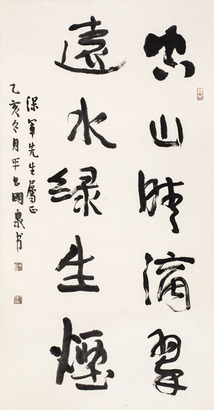 空山晴滴翠
遠水绿生煙
保軍先生屬正
乙亥冬月平國泉书